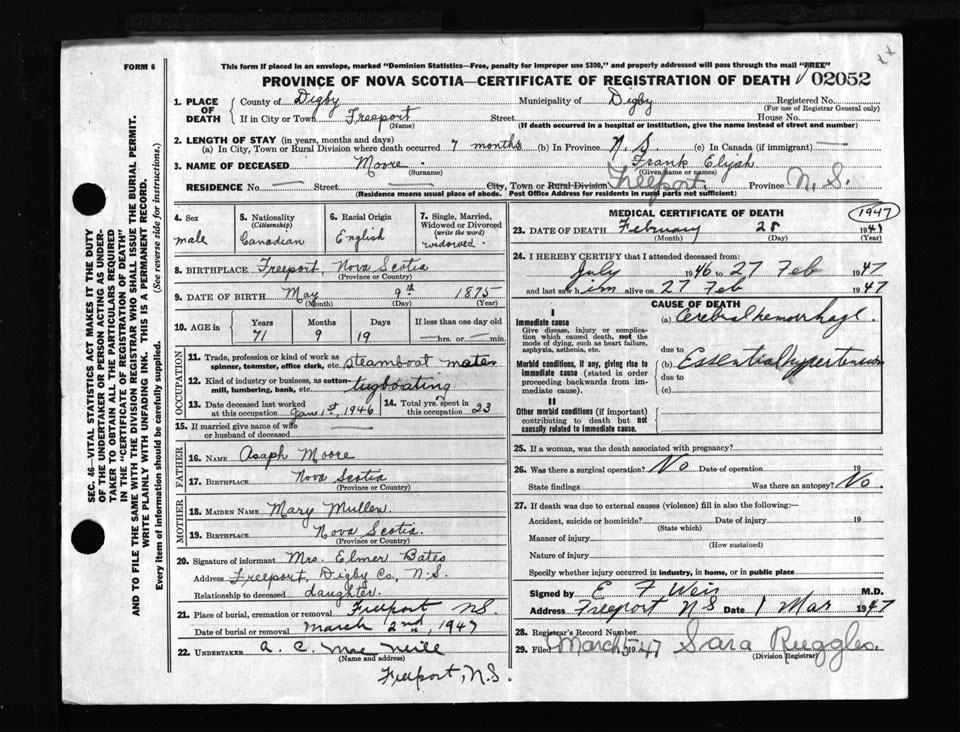 FORM 6
This form if placed in an envelope, marked "Dominion Statistics—Free, penalty for improper use $300," and properly addressed will pass through the mail "FREE"
PROVINCE OF NOVA SCOTIA—CERTIFICATE OF REGISTRATION OF DEATH 02052
xx
1. PLACE OF DEATH County of Digby Municipality of Digby Registered No.
(For use of Registrar General only)
If in City or Town Freeport Street House No.
(Name) (If death occurred in a hospital or institution, give the name instead of street and number)
2. LENGTH OF STAY (in years, months and days)
(a) In City, Town or Rural Division where death occurred 7 months (b) In Province N. S (c) In Canada (if immigrant) —
3. NAME OF DECEASED Moore Frank Elijah
(Surname) (Given name or names)
RESIDENCE No. — Street — City, Town or Rural Division Freeport. Province N. S.
(Residence means usual place of abode. Post Office Address for residents in rural parts not sufficient)
4. Sex
male
5. Nationality
(Citizenship)
Canadian
6. Racial Origin
English
7. Single, Married, Widowed or Divorced
(write the word)
widowed.
8. BIRTHPLACE Freeport, Nova Scotia
(Province or Country)
9. DATE OF BIRTH May 9th 1875
(Month) (Day) (Year)
10. AGE in Years Months Days If less than one day old
71 9 19 —hrs. or —min.
OCCUPATION
11. Trade, profession or kind of work as spinner, teamster, office clerk, etc. steamboat mate
12. Kind of industry or business, as cotton-mill, lumbering, bank, etc. tugboating
13. Date deceased last worked at this occupation June 1st, 1946
14. Total yrs. spent in this occupation 23
15. If married give name of wife or husband of deceased —
FATHER
16. NAME Asaph Moore
17. BIRTHPLACE Nova Scotia
(Province or Country)
MOTHER
18. MAIDEN NAME Mary Mullen
19. BIRTHPLACE Nova Scotia
(Province or Country)
20. Signature of informant Mrs. Elmer Bates
Address Freeport, Digby Co, N.S.
Relationship to deceased daughter.
21. Place of burial, cremation or removal Freeport N.S.
Date of burial or removal March 2nd, 1947
22. UNDERTAKER A. C. MacNeill
(Name and address)
Freeport, N.S.
MEDICAL CERTIFICATE OF DEATH 1947
23. DATE OF DEATH February 28 1947
(Month) (Day) (Year)
24. I HEREBY CERTIFY that I attended deceased from:
July 1946 to 27 Feb 1947
and last saw him alive on 27 Feb 1947
CAUSE OF DEATH
I
Immediate cause (a) Cerebral hemorrhage.
Give disease, injury or complication which caused death, not the mode of dying, such as heart failure, asphyxia, asthenia, etc.
due to
Morbid conditions, if any, giving rise to immediate cause (stated in order proceeding backwards from immediate cause).
(b) Essential hypertension
due to
(c)
II
Other morbid conditions (if important) contributing to death but not causally related to immediate cause.
25. If a woman, was the death associated with pregnancy?
26. Was there a surgical operation? No Date of operation 19
State findings Was there an autopsy? No.
27. If death was due to external causes (violence) fill in also the following:—
Accident, suicide or homicide? Date of injury 19
(State which)
Manner of injury
(How sustained)
Nature of injury
Specify whether injury occurred in industry, in home, or in public place
Signed by E F Weir M.D.
Address Freeport N S Date 1 Mar 1947
28. Registrar's Record Number
29. Filed March 5 1947 Sara Ruggles.
(Division Registrar)
SEC. 46—VITAL STATISTICS ACT MAKES IT THE DUTY
OF THE UNDERTAKER OR PERSON ACTING AS UNDERTAKER TO OBTAIN ALL THE PARTICULARS REQUIRED
IN THE "CERTIFICATE OF REGISTRATION OF DEATH"
AND TO FILE THE SAME WITH THE DIVISION REGISTRAR WHO SHALL ISSUE THE BURIAL PERMIT.
WRITE PLAINLY WITH UNFADING INK. THIS IS A PERMANENT RECORD.
Every item of information should be carefully supplied. (See reverse side for instructions.)